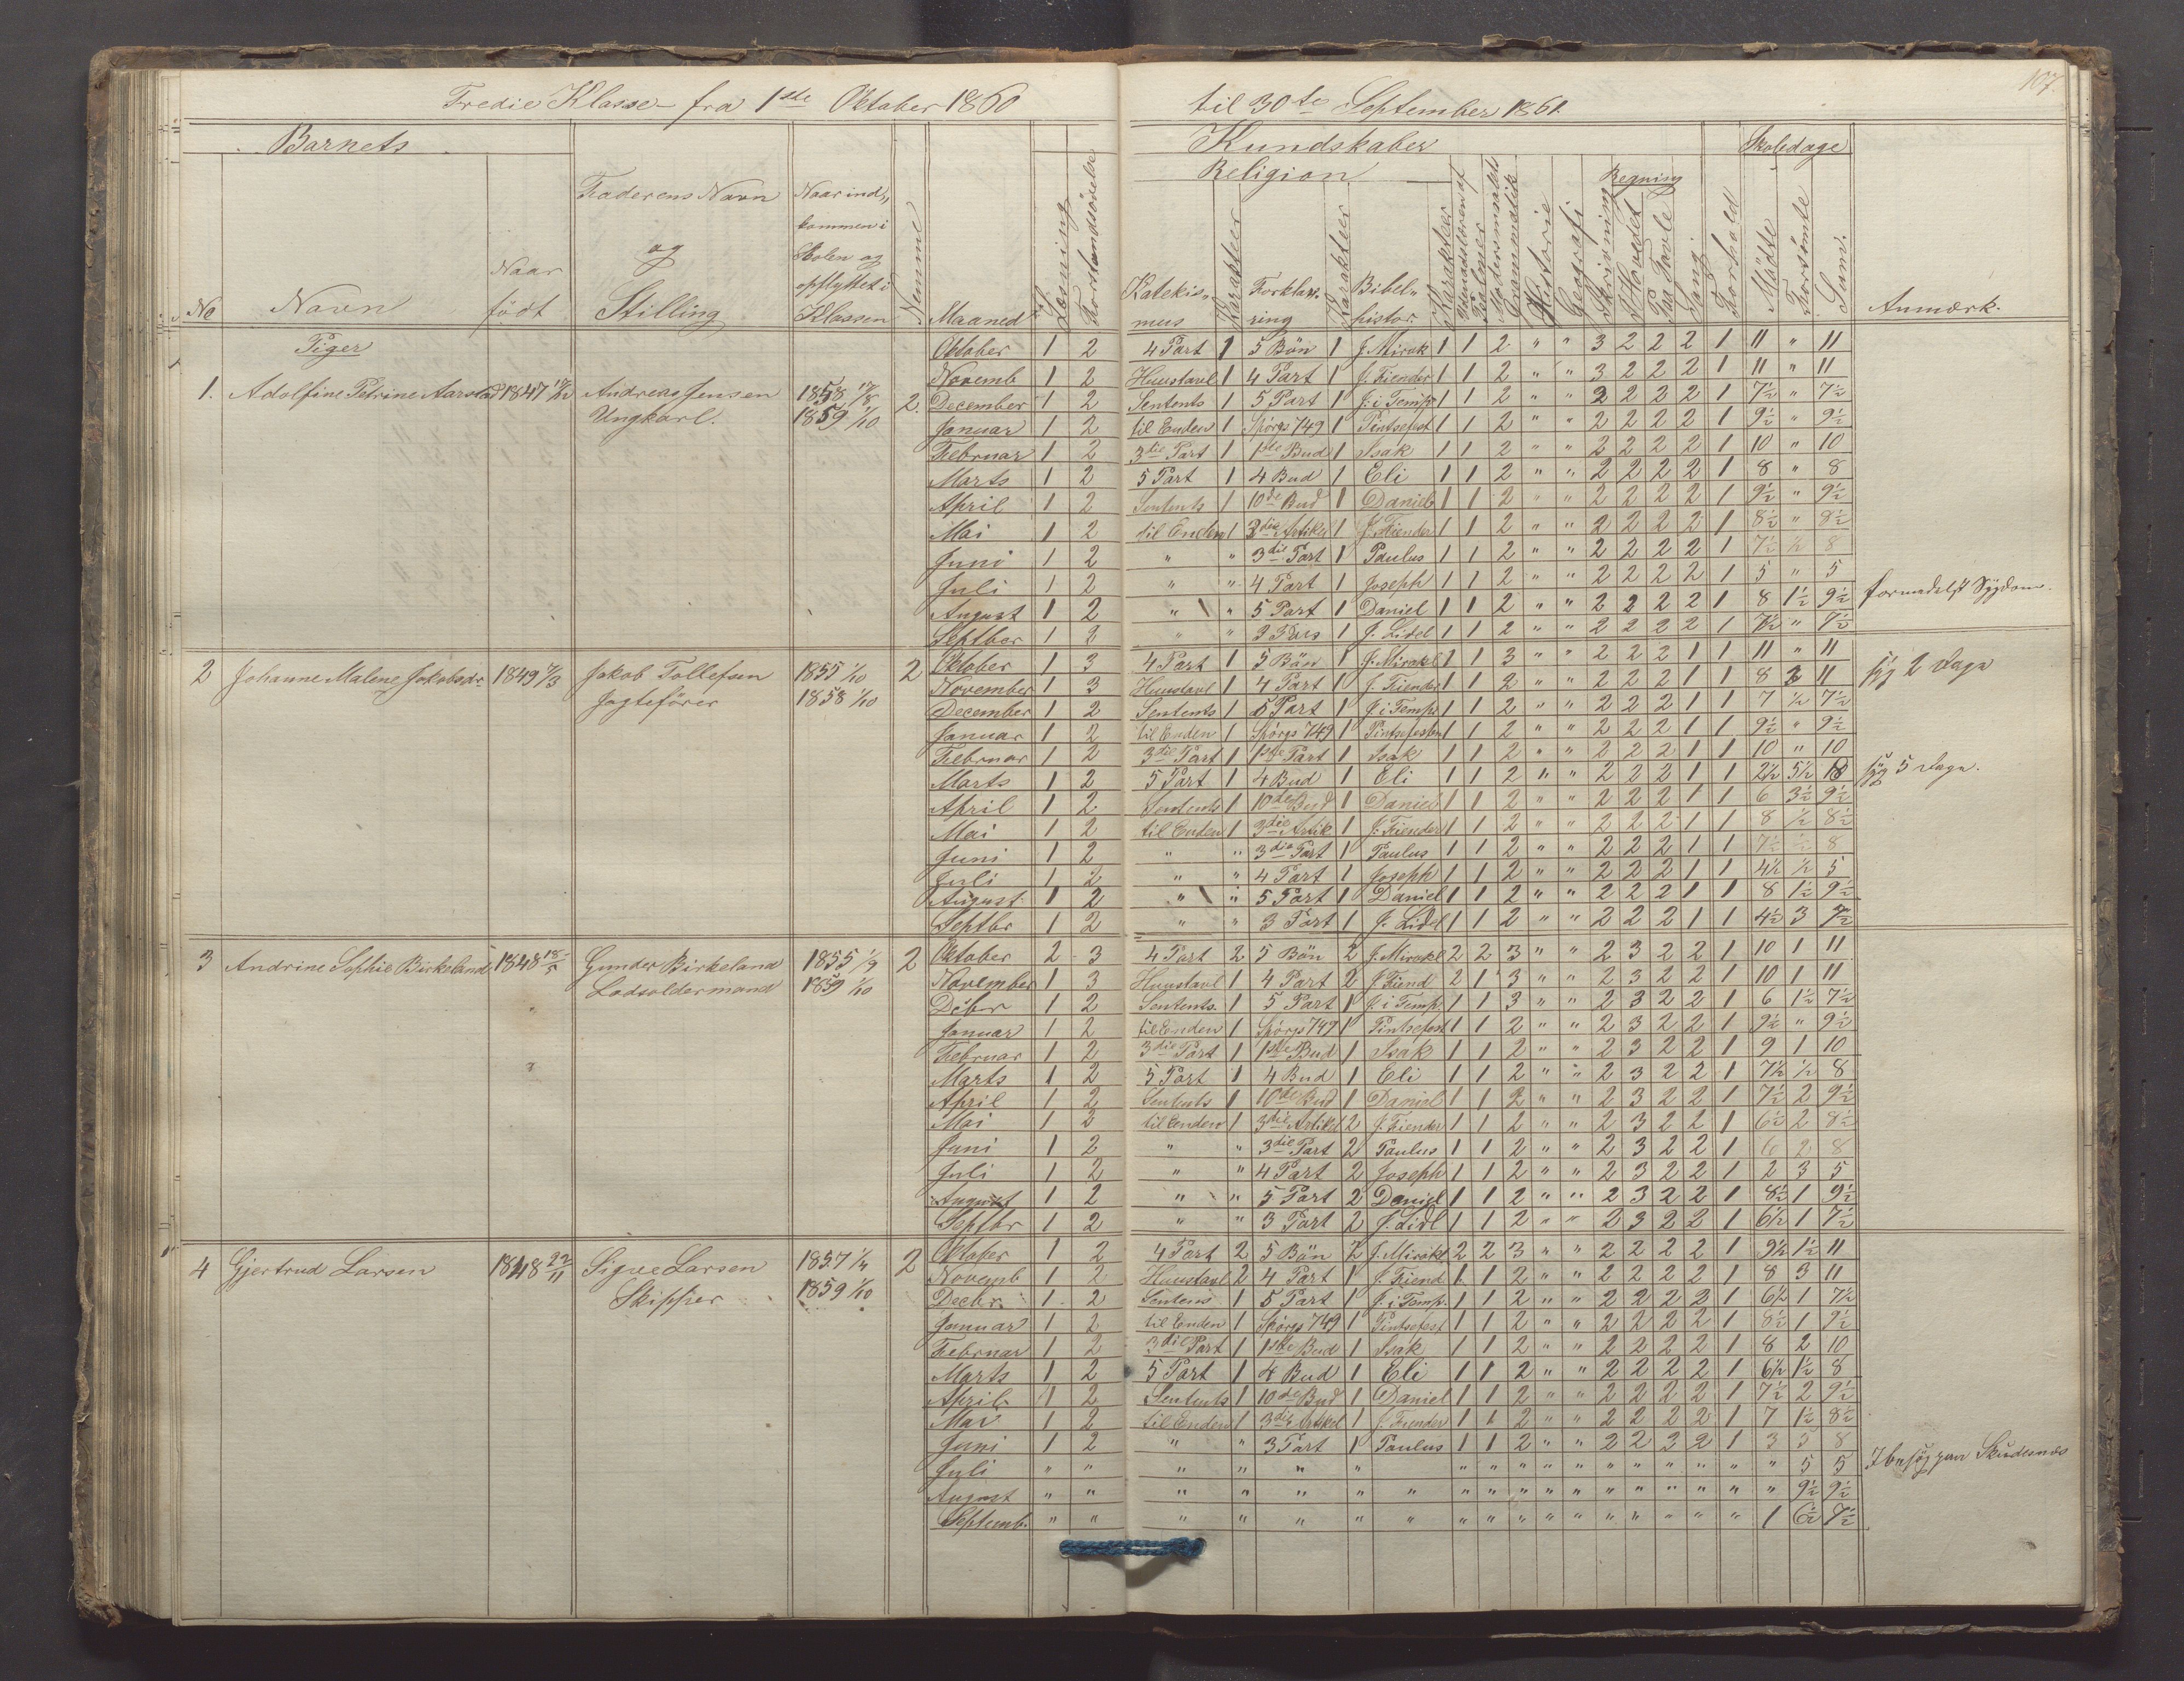 107.
Tredie Klasse fra 1ste Oktober 1860 til 30te September 1861.
Barnets
No
Navn
Naar født
Faderens Navn og Stilling
Naar ind- kommen i Skolen og opflyttet i Klassen
Nemme
Maaned
Læsning
Forstandsøvelse
Kundskaber
Religion
Katekis- mus
Karakteer
Forklar- ring
Karakteer
Bibel- histor.
Karakteer
Udenadslæren af Psalmer
Modersmaalet Grammatik
Historie
Geografi
Skrivning
Regning
I Hovedet
Paa Tavle
Sang
Forhold
Skoledage
Mødte
Forsømte
Sum.
Anmærk.
Piger
1. Adolfine Petrine Aarstad 1847 Andreas Jensen Ungkarl. 1858 17/8 1859 1/10 2.
Oktober 1 2 4 Part 1 5 Bön 1 J. Mirak 1 1 2 " " 3 2 2 2 1 11 " 11
Novemb 1 2 Huustavl 1 4 Part 1 J. Fiender 1 1 2 " " 3 2 2 2 1 11 " 11
December 1 2 Sentents 1 5 Part 1 J. i Temp 1 1 2 " " 2 2 2 2 1 7½ " 7½
Januar 1 2 til Enden 1 Spörgs 749 1 Pintsefest 1 1 2 " " 2 2 2 2 1 9½ " 9½
Februar 1 2 3die Part 1 1ste Bud 1 Isak 1 1 2 " " 2 2 2 2 1 10 " 10
Marts 1 2 5 Part 1 4 Bud 1 Eli 1 1 2 " " 2 2 2 2 1 8 " 8
April 1 2 Sentents 1 10de Bud 1 Daniel 1 1 2 " " 2 2 2 2 1 9½ " 9½
Mai 1 2 til Enden 1 3die Artikel 1 J. Fiender 1 1 2 " " 2 2 2 2 1 8½ " 8½
Juni 1 2 " " 3die Part 1 Paulus 1 1 2 " " 2 2 2 2 1 7½ ½ 8
Juli 1 2 " " 4 Part 1 Joseph 1 1 2 " " 2 2 2 2 1 5 " 5
August 1 2 " " 5 Part 1 Daniel 1 1 2 " " 2 2 2 2 1 8 1½ 9½ formedelst Sygdom.
Septber 1 2 " " 3 Part 1 J. Lidel 1 1 2 " " 2 2 2 2 1 7½ " 7½
2 Johanne Malene Jakobsdr 1849 Jakob Tollefsen Jagtefører 1855 1/10 1858 1/10 2
Oktober 1 3 4 Part 1 5 Bön 1 J. Mirakl 1 1 3 " " 2 2 2 1 1 11 " 11
November 1 3 Huustavl 1 4 Part 1 J. Fiender 1 1 2 " " 2 2 2 1 1 8 3 11 syg 2 Dage
December 1 2 Sentents 1 5 Part 1 J. i Temp 1 1 2 " " 2 2 2 1 1 7 ½ 7½
Januar 1 2 til Enden 1 Spörgs 749 1 Pintsefesten 1 1 2 " " 2 2 2 1 1 9½ " 9½
Februar 1 2 3die Part 1 1ste Part 1 Isak 1 1 2 " " 2 2 2 1 1 10 " 10
Marts 1 2 5 Part 1 4 Bud 1 Eli 1 1 2 " " 2 2 2 1 1 2½ 5½ 8 syg 5 Dage.
April 1 2 Sentents 1 10de Bud 1 Daniel 1 1 2 " " 2 2 2 1 1 6 3½ 9½
Mai 1 2 til Enden 1 3die Artik 1 J. Fiender 1 1 2 " " 2 2 2 1 1 8 ½ 8½
Juni 1 2 " " 3die Part 1 Paulus 1 1 2 " " 2 2 2 1 1 7½ ½ 8
Juli 1 2 " " 4 Part 1 Joseph 1 1 2 " " 2 2 2 1 1 4½ ½ 5
August 1 2 " " 5 Part 1 Daniel 1 1 2 " " 2 2 2 1 1 8 1½ 9½
Septbr 1 2 " " 3 Part 1 J. Lidel 1 1 2 " " 2 2 2 1 1 4½ 3 7½
3 Andrine Sophie Birkeland 1848 18/5 Gunder Birkeland Lodsoldermand 1855 1/9 1859 1/10 2
Oktober 2 3 4 Part 2 5 Bön 2 J. Mirakl 2 2 3 " " 2 3 2 2 1 10 1 11
November 1 3 Huustavl 1 4 Part 2 J. Fiend 2 1 3 " " 2 3 2 2 1 10 1 11
Deser 1 2 Sentents. 1 5 Part 1 J. i Temp. 1 1 3 " " 2 3 2 2 1 6 1½ 7½
Januar 1 2 til Enden 1 Spörgs 749 1 Pintsefest 1 1 2 " " 2 3 2 2 1 9½ " 9½
Februar 1 2 3die Part 1 1ste Bud 1 Isak 1 1 2 " " 2 3 2 2 1 9 1 10
Marts 1 2 5 Part 1 4 Bud 1 Eli 1 1 2 " " 2 3 2 2 1 7½ ½ 8
April 1 2 Sentents 1 10de Bud 1 Daniel 1 1 2 " " 2 3 2 2 1 7½ 2 9½
Mai 1 2 til Enden 1 3die Artikel 2 J. Fiender 1 1 2 " " 2 3 2 2 1 6½ 2 8½
Juni 1 2 " " 3die Part 2 Paulus 1 1 2 " " 2 3 2 2 1 6 2 8
Juli 1 2 " " 4 Part 2 Joseph 1 1 2 " " 2 3 2 2 1 2 3 5
August 1 2 " " 5 Part 2 Daniel 1 1 2 " " 2 3 2 2 1 8½ 1 9½
Septbr 1 2 " " 3 Part 2 J. Lidl 1 1 2 " " 2 3 2 2 1 6½ 1 7½
4 Gjertrud Larsen 1848 22/11 Sigve Larsen Skipper 1857 1/4 1859 1/10 2
Oktober 1 2 4 Part 2 5 Bön 2 J. Mirakl 2 2 3 " " 2 2 2 2 1 9½ 1½ 11
Novemb 1 2 Huustavl 2 4 Part 1 J. Fiend 1 1 2 " " 2 2 2 2 1 8 3 11
Decbr. 1 2 Sentens 1 5 Part 1 J. i Temp. 1 1 2 " " 2 2 2 2 1 6½ 1 7½
Januar 1 2 til Enden 1 Spörgs 749 1 Pintsefest 1 1 2 " " 2 2 2 2 1 8½ 1 9½
Februar 1 2 3die Part 1 1ste Bud 1 Isak 1 1 2 " " 2 2 2 2 1 8 2 10
Marts 1 2 5 Part 1 4 Bud 1 Eli 1 1 2 " " 2 2 2 2 1 6½ 1½ 8
April 1 2 Sentents 1 10de Bud 1 Daniel 1 1 2 " " 2 2 2 2 1 7½ 2 9½
Mai 1 2 til Enden 1 3die Artikel 1 J. Fiender 1 1 2 " " 2 2 2 2 1 7 1½ 8½
Juni 1 2 " " 3 Part 1 Paulus 1 1 2 " " 2 2 2 2 1 3 5 8
Juli " " " " " " " " " " " " " " " " " 5 5 I besøg paa Skudesnæs
August " " " " " " " " " " " " " " " " " " 9½ 9½
Septemb. " " " " " " " " " " " " " " " " " 1 6½ 7½